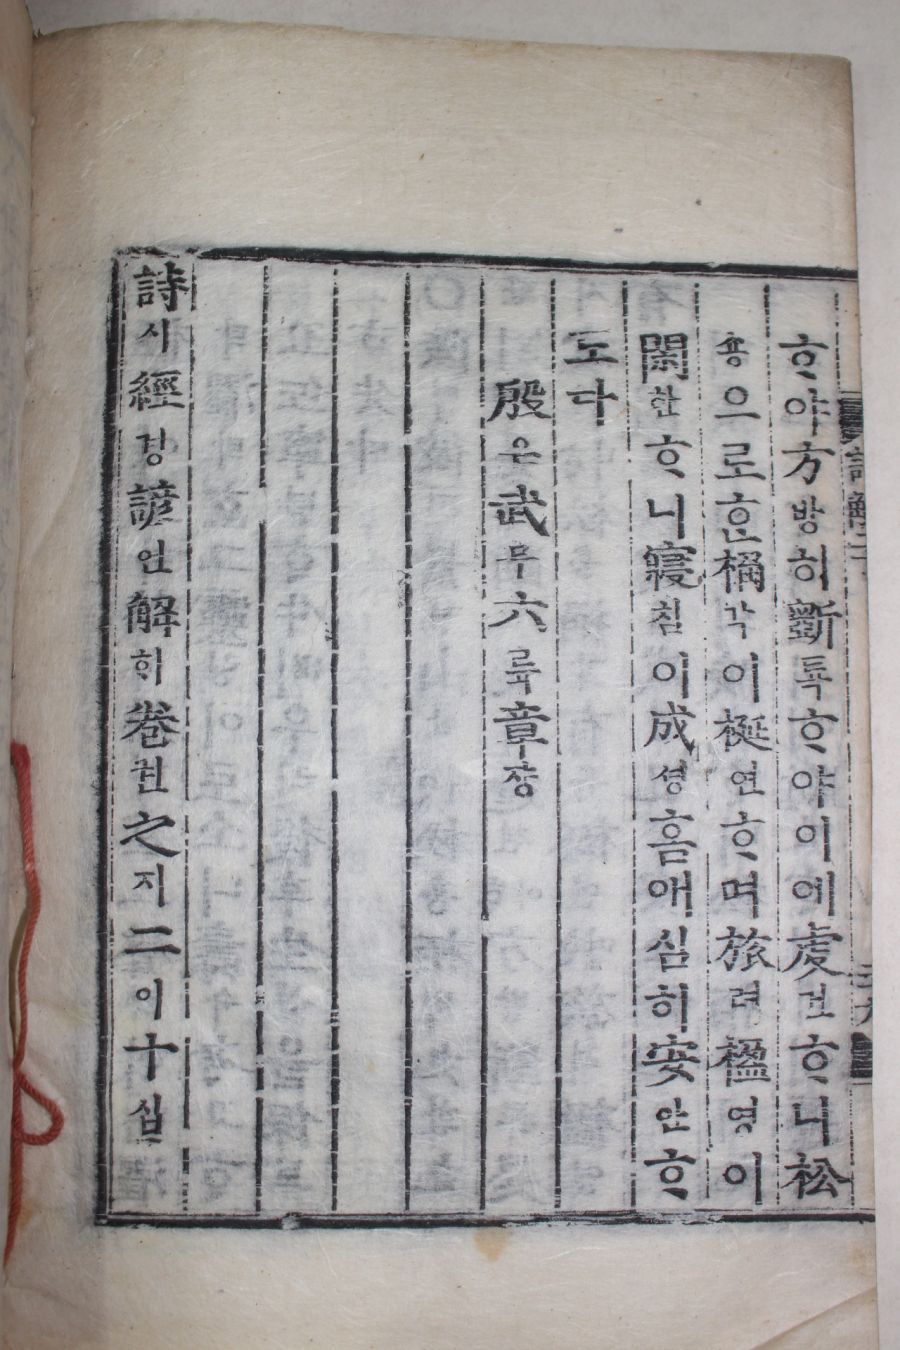 ᄒᆞ야方방히斲탹ᄒᆞ야이에虔건ᄒᆞ니松
숑으로ᄒᆞᆫ桷각이梴연ᄒᆞ며旅려楹영이
閑한ᄒᆞ니寢침이成셩홈애심히安안ᄒᆞ
도다
殷은武무六륙章쟝
詩시經경諺언解ᄒᆡ卷권之지二이十십